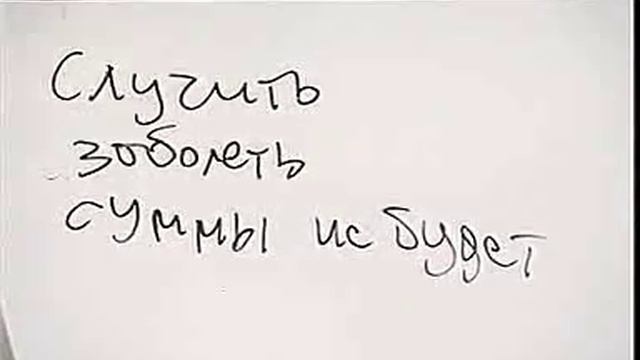 Случить
зоболеть
суммы ис будет